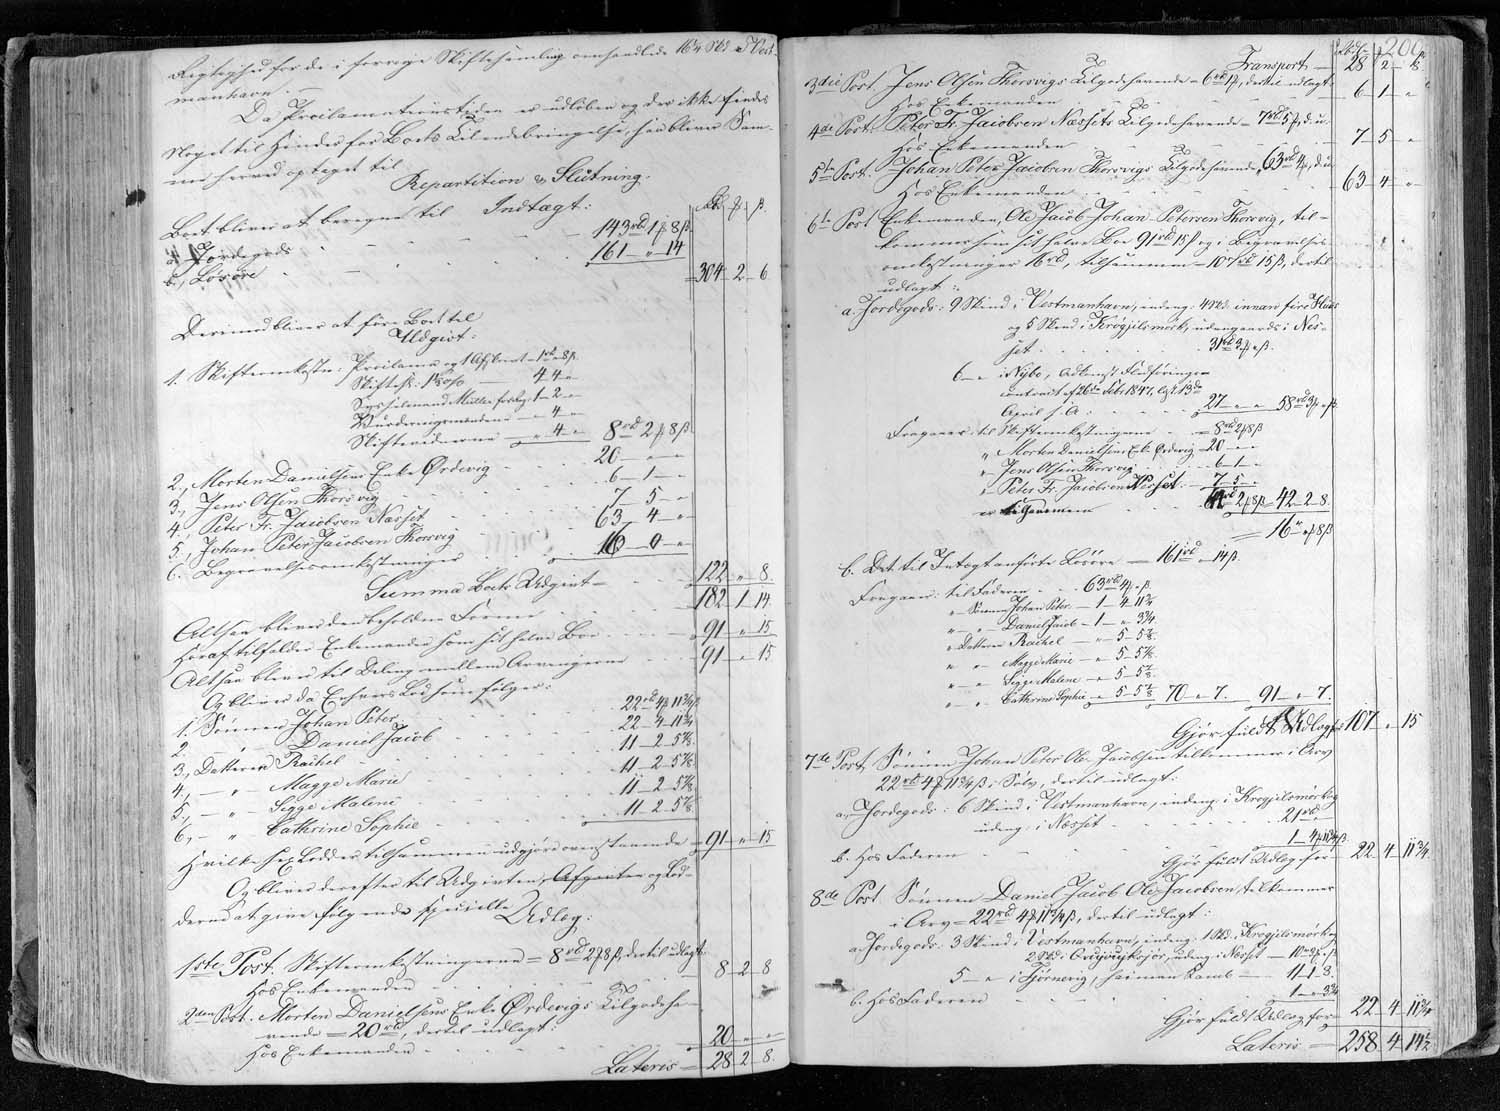 Skjøtephu for de i forrige Skiftesamling omhandlede 16¼ Skd i Vest-
manhavn. —
Da Proclamationstiden er udløben og der ikke findes
Noget til Hinder for Boets Tilendebringelse, saa bliver Sam-
me herved optaget til
Repartition & Slutning.
Boet bliver at beregne til Indtægt:
a, Jordegods 143rd 1 ꝑ 8 ß.
b, Løsøre 161 — „ 14
304 — 2 — 6
Derimod bliver at føre Boet til
Udgivt:
1. Skifteomkostn: Proclama og 1 Afskrevet — 1rd „ 8 ß
Skifteafg. 1½ 0/0 4 4 „
Sysselmand Müller forlag: 1 — 2 — „
Vurderingsmændene „ 4 — „
Skifteraderne „ 4 — „ 8rd 2 ꝑ 8 ß
2, Morten Danielsens Enke Ørdevig 20 — „ — „
3, Jens Olsen Thorsvig 6 — 1 — „
4, Peter Fr. Jacobsen Næsset 7 — 5 — „
5, Johan Peter Jacobsen Thorsvig 63 — 4 — „
6. Begravelsesomkostninger 16 — 0 — „
Summa Boets Udgivt — 122 „ 8.
Altsaa bliver den beholdne Formue 182 1 14.
Heraf tilfalder Enkemanden som sit halve Boe 91 „ 15
Altsaa bliver til Deling mellem Arvingerne 91 „ 15
Og bliver da Enhvers Lod som følger:
1. Sønnen Johan Peter 22rd 4 ꝑ 11¾ ß
2 — „ Daniel Jacob 22 — 4 — 11¾
3, Datteren Rachel 11 — 2 — 5⅞
4, — „ Magge Marie 11 — 2 — 5⅞
5, — „ Sigge Malene 11 — 2 5⅞
6, — „ Cathrine Sophie 11 — 2 — 5⅞
Hvilke sex Lodder tilsammen udgjøre ovenstaaende 91 — „ — 15
Og bliver derefter til Udgivten, Afgivten og Lod-
derne at give følgende specielle Udlæg:
1ste Post. Skifteomkostningerne = 8rd 2 ꝑ 8 ß, dertil udlagt:
Hos Enkemanden 8 2 8
2den Post. Morten Danielsens Enke Ørdevigs Tilgodeha-
vende = 20rd, dertil udlagt:
Hos Enkemanden 20 „ „
Lateris = 28 2 8.
200.
Rbd. ꝑ ß
Transport 28 2 8
3die Post. Jens Olsen Thorsvigs Tilgodehavende = 6rd 1 ꝑ, dertil udlagt:
Hos Enkemanden 6 1 „
4de Post. Peter Fr. Jacobsen Næssets Tilgodehavende = 7rd 5 ꝑ, d. u.
Hos Enkemanden 7 — 5 „
5te Post. Johan Peter Jacobsen Thorsvigs Tilgodehavende, 63rd 4 ꝑ, d. u.
Hos Enkemanden 63 — 4 „
6te Post Enkemanden, Ole Jacob Johan Petersen Thorsvig, til-
kommer som sit halve Boe 91rd 15 ß og i Begravelses-
omkostninger 16rd, tilsammen = 107rd 15 ß, dertil
udlagt:
a. Jordegods: 9 Skind i Vestmanhavn, indeng: 4 Skd. innan fire Huus
og 5 Skind i Krogjilsmørk, udengaards i Næs-
set 31rd 3 ꝑ „ ß.
6 — „ i Nybo, Ad
contract af 26de Febr 1847, lgst. 13de
April s. A. 27 — „ — „ 58rd 3 ꝑ „ ß
Fragaaer: til Skifteomkostningerne = 8rd 2 ꝑ 8 ß
„ Morten Danielsens Enke Ørdevig — 20 — „ „
„ Jens Olsen Thorsvig — 6 — 1 — „
„ Peter Fr. Jacobsen Næsset — 7 — 5 — „
2 ꝑ 8 ß = 42 — 2 — 8.
= 16 „ ꝑ 8 ß
b. Det til Indtægt anførte Løsøre = 161rd — 14 ß.
Fragaaer: til Faderen 63rd 4 ꝑ „ ß.
„ Sønnen Johan Peter — 1 — 4 11¾
„ — „ Daniel Jacob — 1 — „ 3¾
„ Datteren Rachel — „ 5 5⅞
„ „ Magge Marie — „ 5 5⅞
„ — „ Sigge Malene — „ 5 — 5⅞
„ — „ Cathrine Sophie — „ 5 — 5⅞ 70 „ 7. 91 — „ 7.
Gjør fuldt Udlæg for 107 „ 15
7de Post. Sønnen Johan Peter Ole Jacobsen tilkommer i Arv
22rd 4 ꝑ 11¾ ß, Sølv, dertil udlagt:
a, Jordegods: 6 Skind i Vestmanhavn, indeng. i Krogjilsmørk og
udeng. i Næsset 21rd „ „
b. Hos Faderen 1 — 4 ꝑ 11¾ ß
Gjør fuldt Udlæg for 22 4 11¾
8de Post. Sønnen Daniel Jacob Ole Jacobsen tilkommer
i Arv = 22rd 4 ꝑ 11¾ ß, dertil udlagt:
a. Jordegods: 3 Skind i Vestmanhavn, indeng. 1 Skd. i Krogjilsmørk og
2 Skd. udeng: i Næsset — 10rd 3 ꝑ „ ß
5 — „ i Tjørnevig, haiman Lamb — 11 1 3.
b. Hos Faderen 1 — „ 3¾
Gjør fuldt Udlæg for 22 4 11¾
Lateris = 258 4 14½